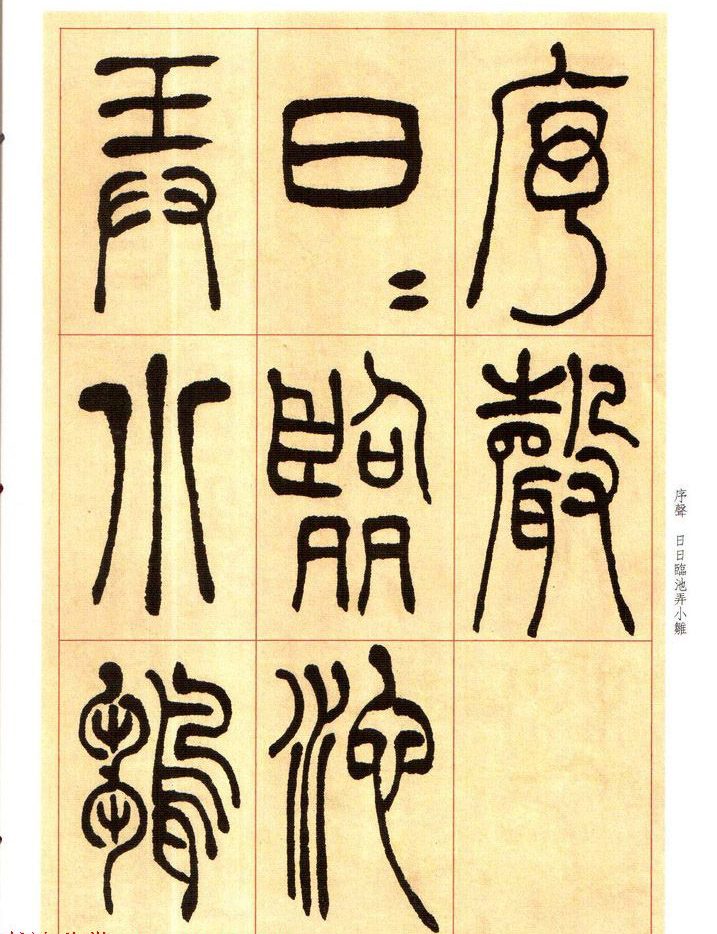 序聲
日〻臨池
弄小雛
序聲 日日臨池弄小雛